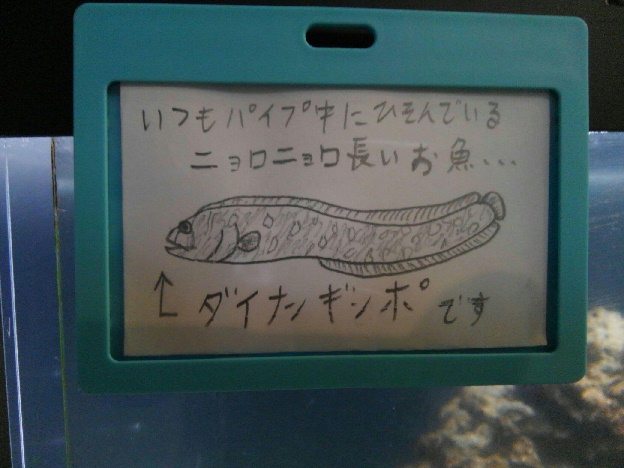 いつもパイプ中にひそんでいる
ニョロニョロ長いお魚...
↑ダイナンギンポです